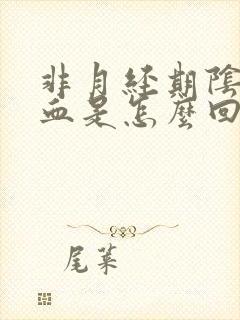 非月經期陰
血是怎麼回
尾葉